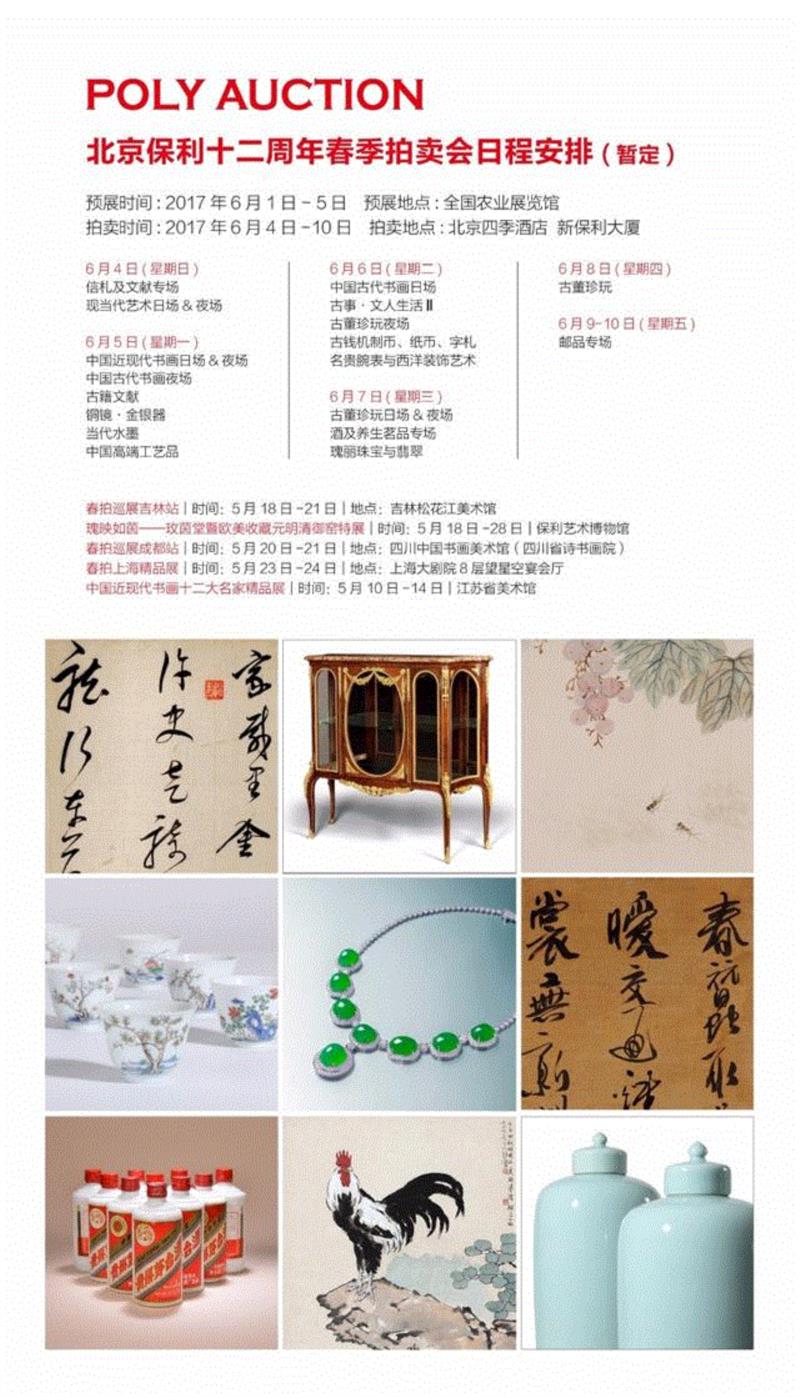 POLY AUCTION
北京保利十二周年春季拍卖会日程安排(暂定)
预展时间:2017年6月1日-5日 预展地点:全国农业展览馆
拍卖时间:2017年6月4日-10日 拍卖地点:北京四季酒店 新保利大厦
6月4日(星期日)
信札及文献专场
现当代艺术日场&夜场
6月5日(星期一)
中国近现代书画日场&夜场
中国古代书画夜场
古籍文献
铜镜·金银器
当代水墨
中国高端工艺品
6月6日(星期二)
中国古代书画日场
古事·文人生活Ⅱ
古董珍玩夜场
古钱机制币、纸币、字札
名贵腕表与西洋装饰艺术
6月7日(星期三)
古董珍玩日场&夜场
酒及养生茗品专场
瑰丽珠宝与翡翠
6月8日(星期四)
古董珍玩
6月9-10日(星期五)
邮品专场
春拍巡展吉林站|时间:5月18日-21日|地点:吉林松花江美术馆
瑰映如茵——玫茵堂暨欧美收藏元明清御窑特展|时间:5月18日-28日|保利艺术博物馆
春拍巡展成都站|时间:5月20日-21日|地点:四川中国书画美术馆(四川省诗书画院)
春拍上海精品展|时间:5月23日-24日|地点:上海大剧院8层望星空宴会厅
中国近现代书画十二大名家精品展|时间:5月10日-14日|江苏省美术馆
春蚕取
暖交
裳無
贵州茅台酒